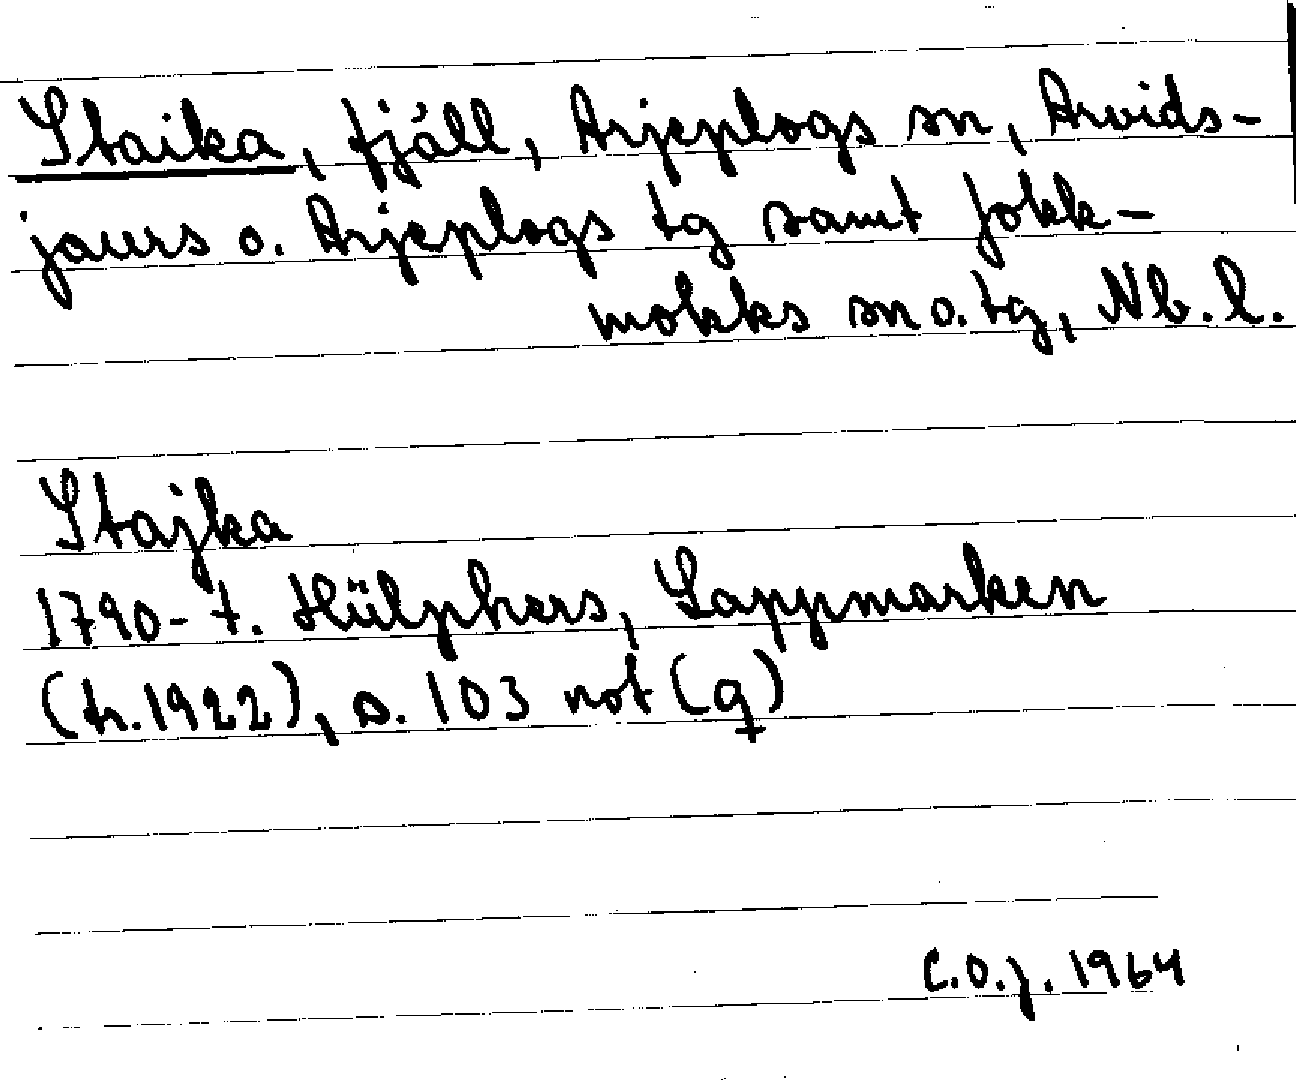 Staika, fjäll, Arjeplogs sn, Arvids-
jaurs o. Arjeplogs tg samt Jokk-
mokks sn o. tg, Nb. l.
Stajka
1790-t. Hülphers, Lappmarken
(tr. 1922), s. 103 not (q)
C.O.J. 1964